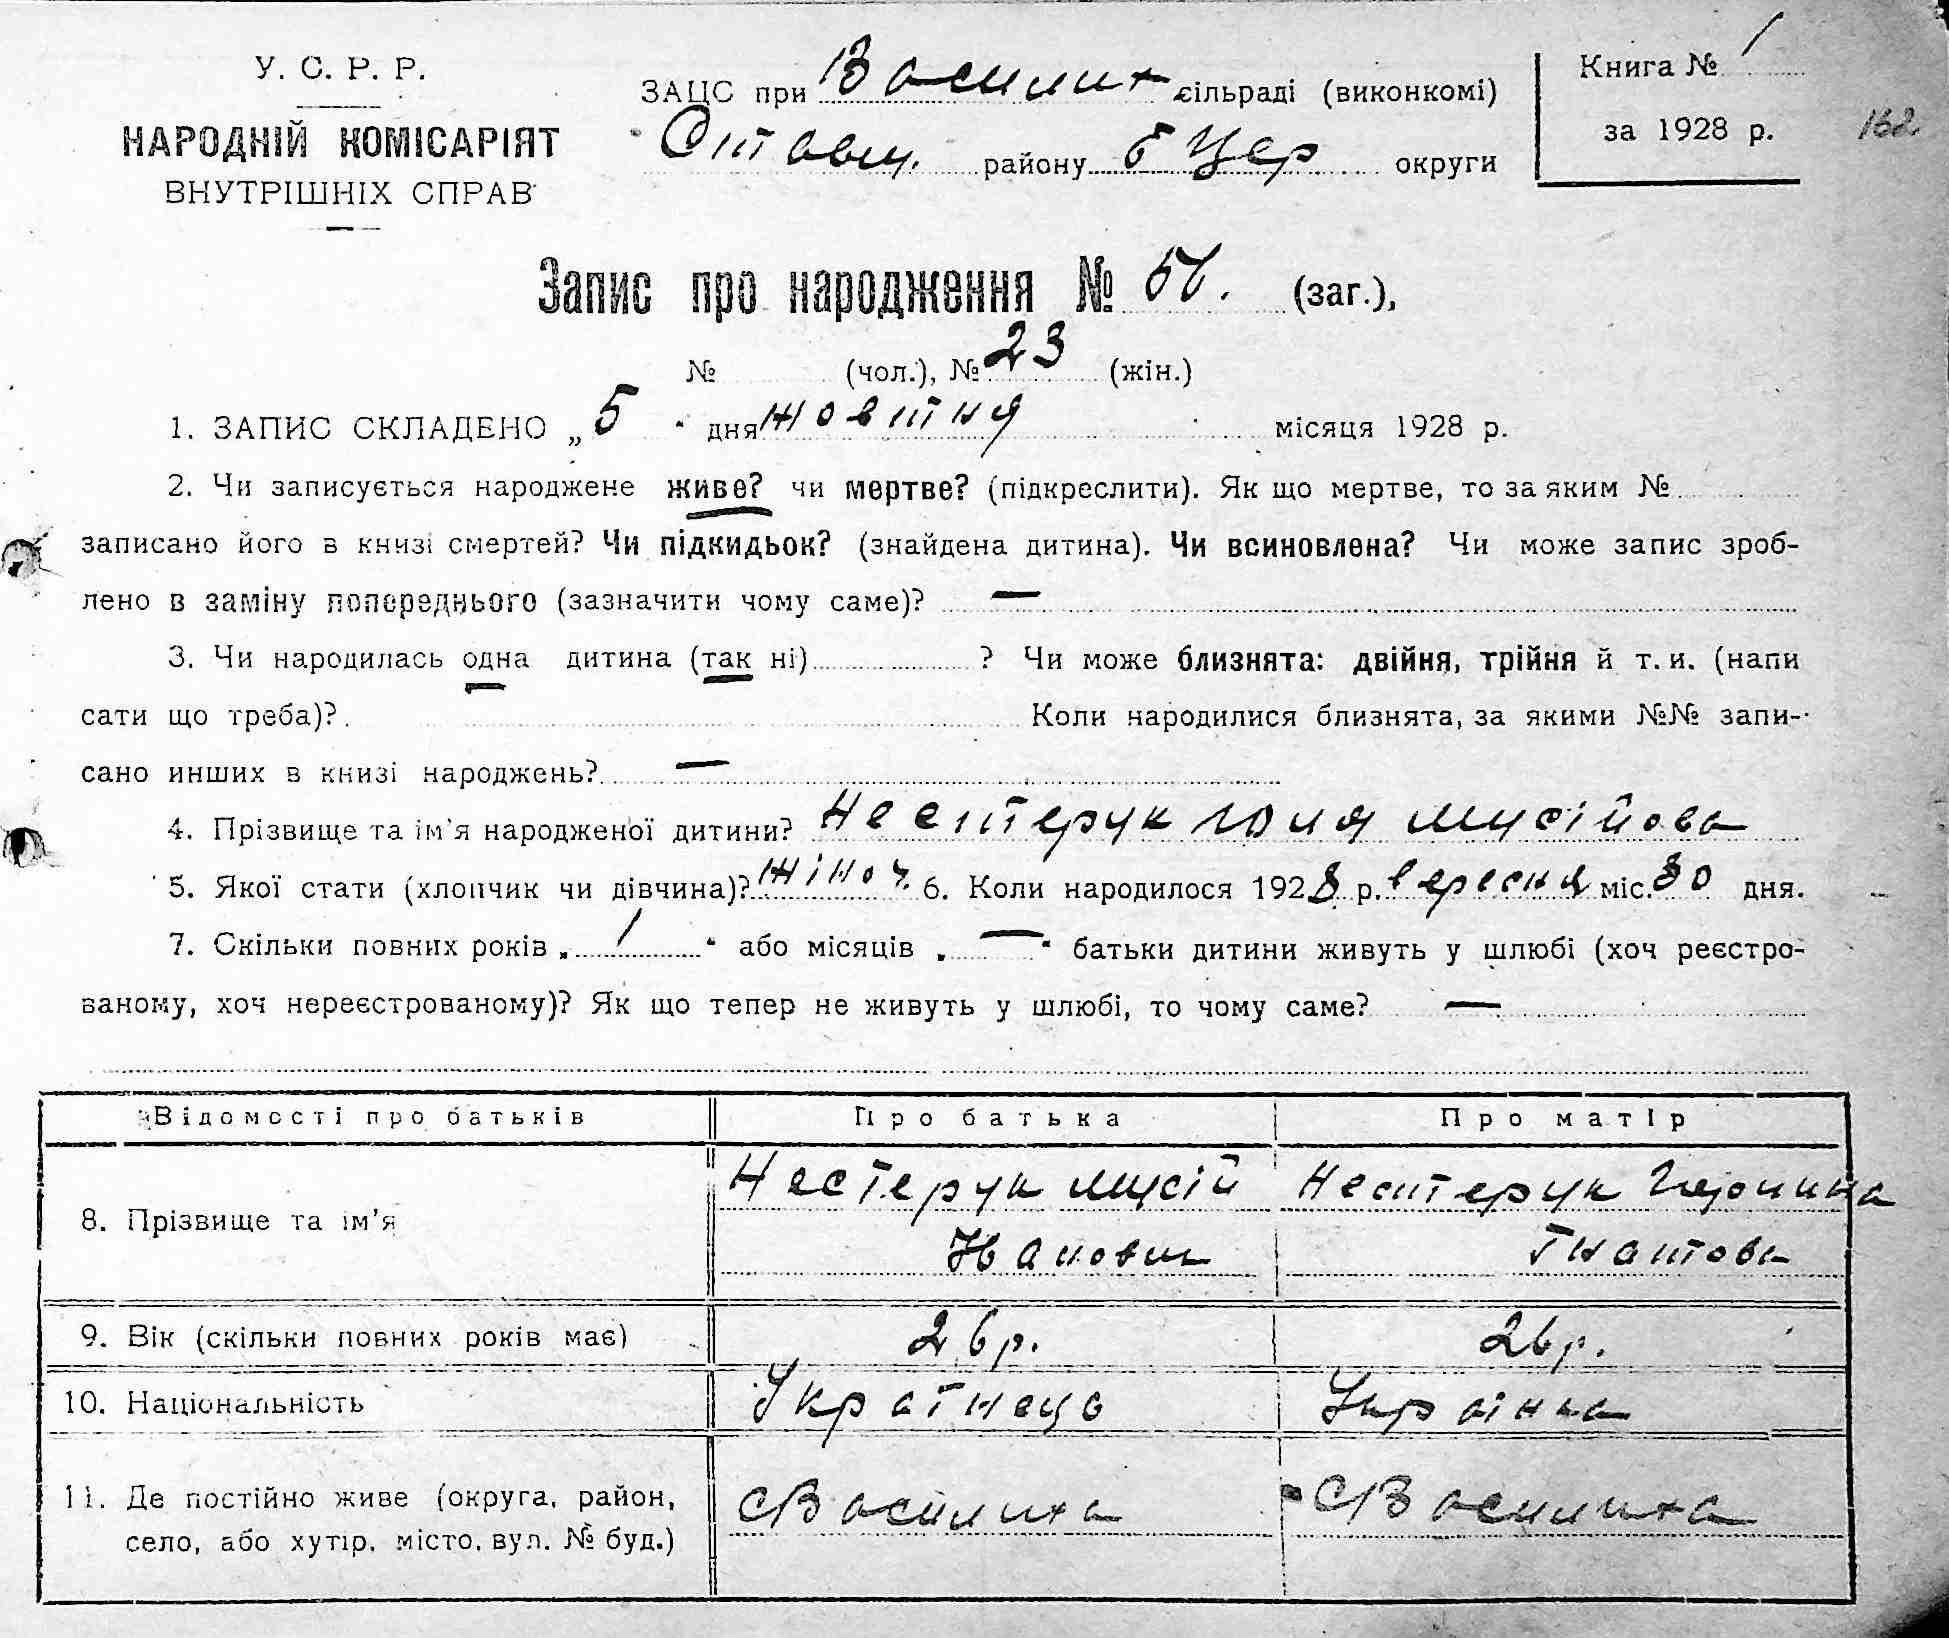 У. С. Р. Р.
НАРОДНІЙ КОМІСАРІЯТ
ВНУТРІШНІХ СПРАВ
ЗАЦС при Василих сільраді (виконкомі)
Ставищ. району Б Цер. округи
Книга № 1
за 1928 р.
162
Запис про народження № 56. (заг.),
№ (чол.), № 23 (жін.)
1. ЗАПИС СКЛАДЕНО „5“ дня жовтня місяця 1928 р.
2. Чи записується народжене живе? чи мертве? (підкреслити). Як що мертве, то за яким №
записано його в книзі смертей? Чи підкидьок? (знайдена дитина). Чи всиновлена? Чи може запис зроб-
лено в заміну попереднього (зазначити чому саме)? —
3. Чи народилась одна дитина (так ні) ? Чи може близнята: двійня, трійня й т. и. (напи
сати що треба)? Коли народилися близнята, за якими №№ запи-
сано инших в книзі народжень? —
4. Прізвище та ім'я народженої дитини? Нестерук Юля Мусійова
5. Якої стати (хлопчик чи дівчина)? жіноч. 6. Коли народилося 1928 р. вересня міс. 30 дня.
7. Скільки повних років „ 1 “ або місяців „ — “ батьки дитини живуть у шлюбі (хоч реєстро-
ваному, хоч нереєстрованому)? Як що тепер не живуть у шлюбі, то чому саме? —
Відомості про батьків Про батька Про матір
8. Прізвище та ім'я Нестерук Мусій Нестерук
Іванович Гнатова
9. Вік (скільки повних років має) 26 р. 26 р.
10. Національність Українець Українка
11. Де постійно живе (округа, район, с Василиха с Василиха
село, або хутір, місто, вул. № буд.)